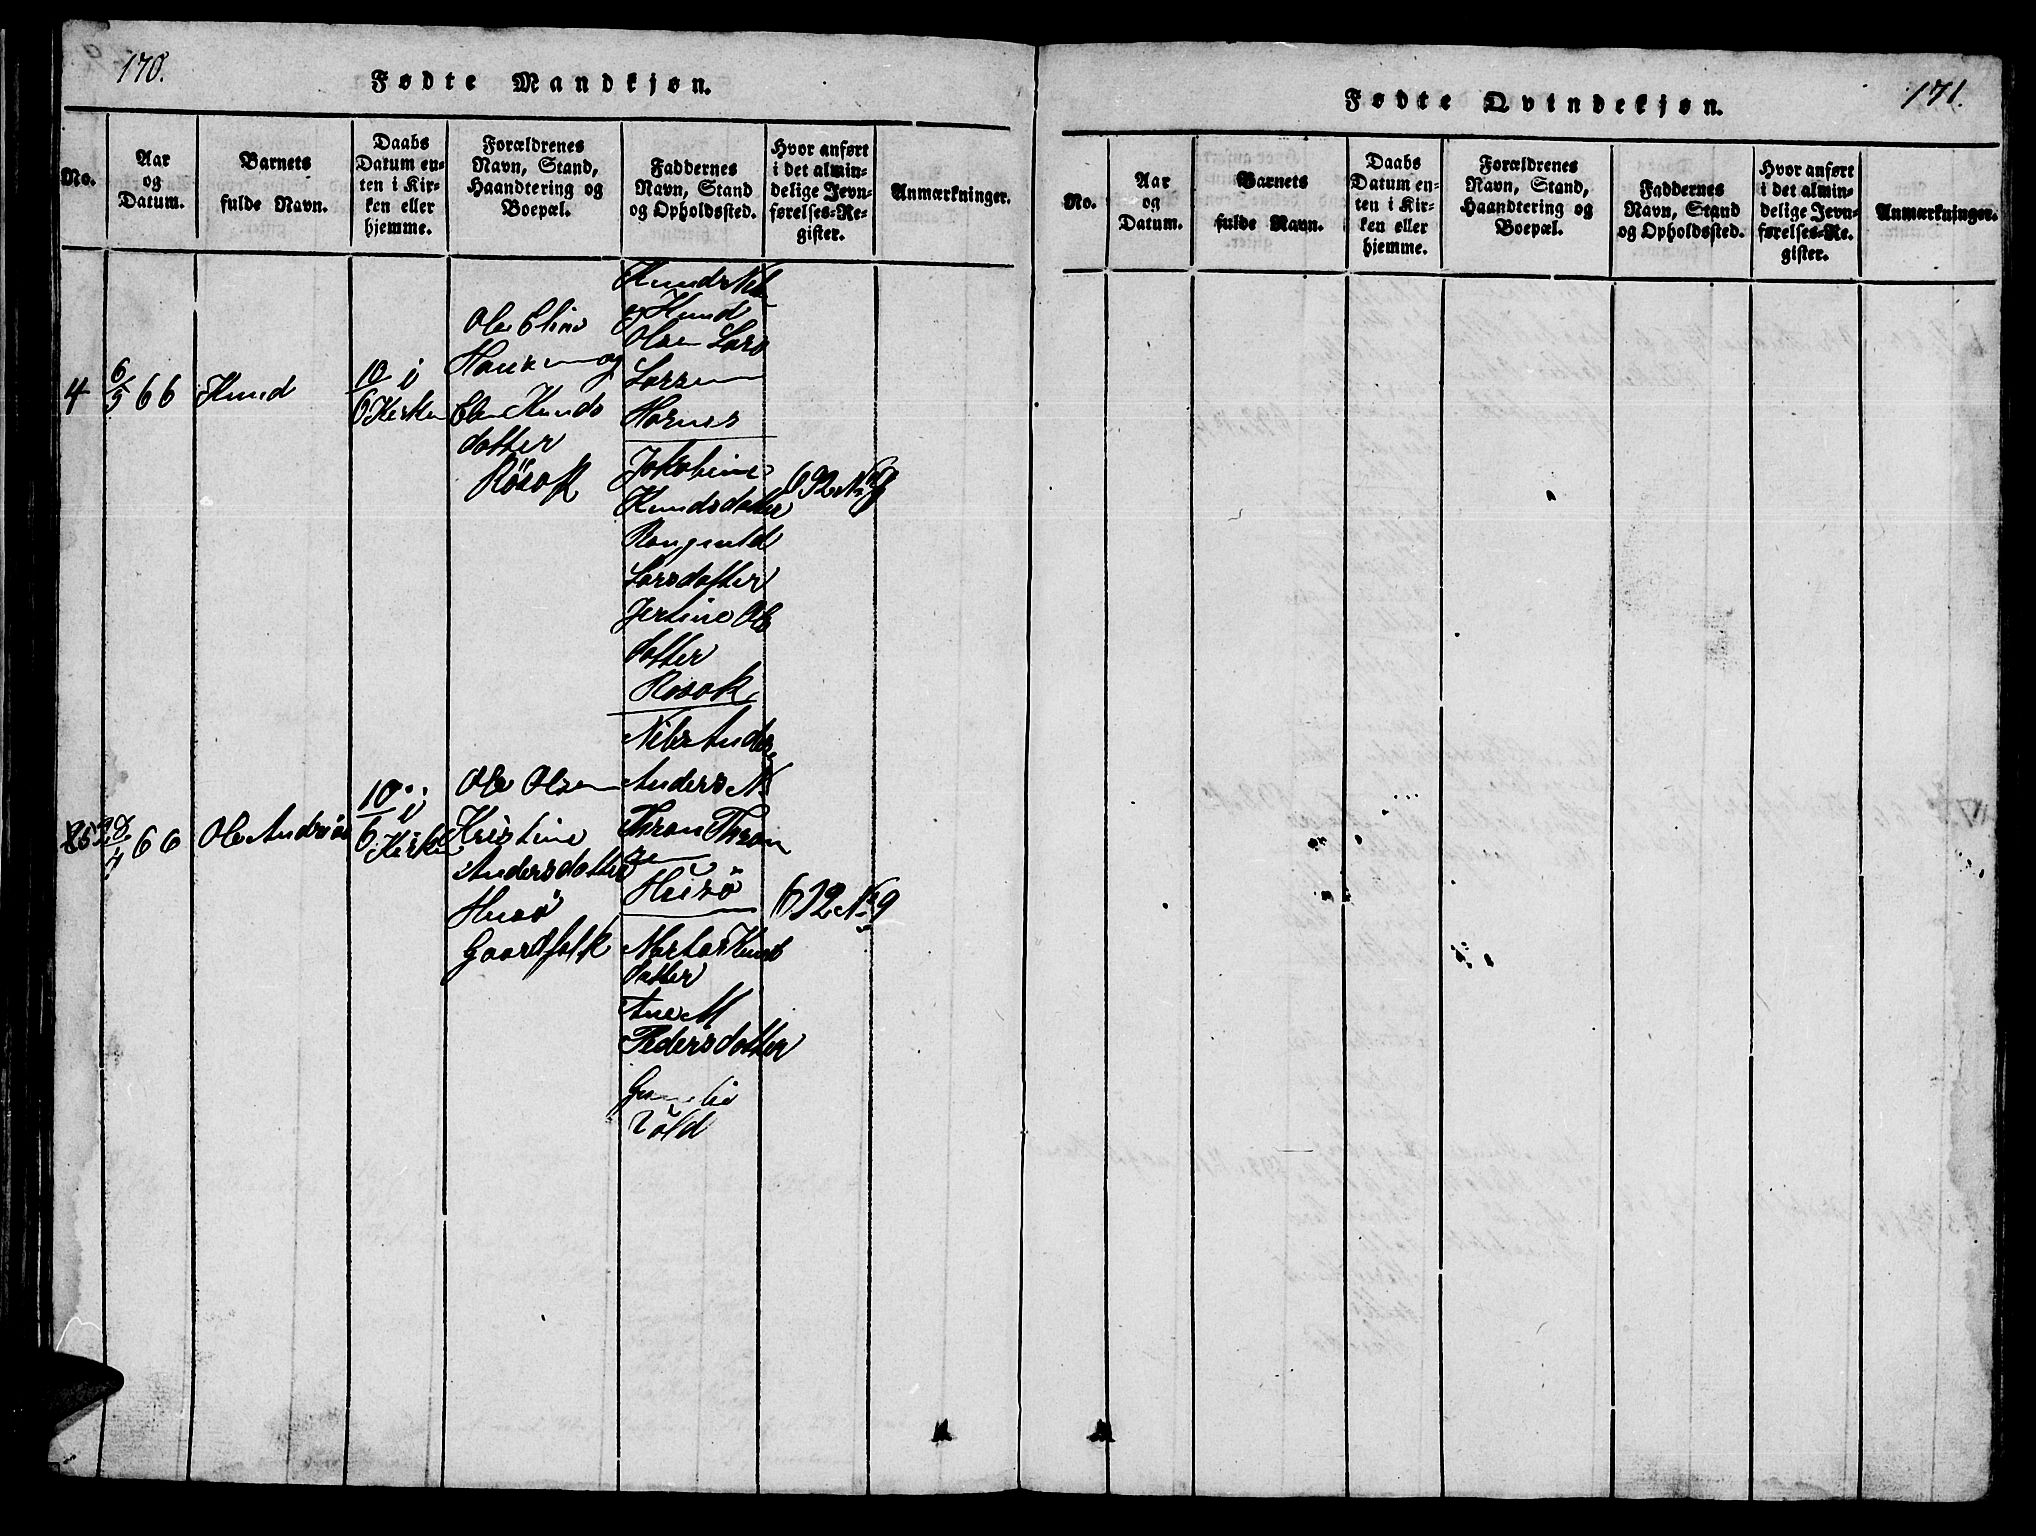 170.
Fødte Mandkjøn.
No.
Aar
og
Datum.
Barnets
fulde Navn.
Daabs
Datum en-
ten i Kir-
ken eller
hjemme.
Forældrenes
Navn, Stand,
Haandtering og
Boepæl.
Faddernes
Navn, Stand
og Opholdssted.
Hvor anført
i det almin-
delige Jevn-
førelses-Re-
gister.
Anmærkninger.
4
6/5 66
Knud
10/6 i
Kirken
Ole Elias
Hansen og
Elen Knuds
datter
Røsok
Knud
Olsen Lars
Larsen
Hornes
Jakobine
Knudsdatter
Rangnild
Larsdatter
Jertine Ols
datter
Røsok
692 No 9
5
28/4 66
Ole Andreas
10/6 i
Kirke
Ole Olsen
Kristine
Andersdatter
Husø
Gaardfolk
Nils Anders
Anders N
Thron Thron
sen
Husø
Marta Knuds
datter
Ane M
Pedersdatter
Vold
692 No 9
171.
Fødte Qvindekjøn.
No.
Aar
og
Datum.
Barnets
fulde Navn.
Daabs
Datum en-
ten i Kir-
ken eller
hjemme.
Forældrenes
Navn, Stand,
Haandtering og
Boepæl.
Faddernes
Navn, Stand
og Opholdssted.
Hvor anført
i det almin-
delige Jevn-
førelses-Re-
gister.
Anmærkninger.